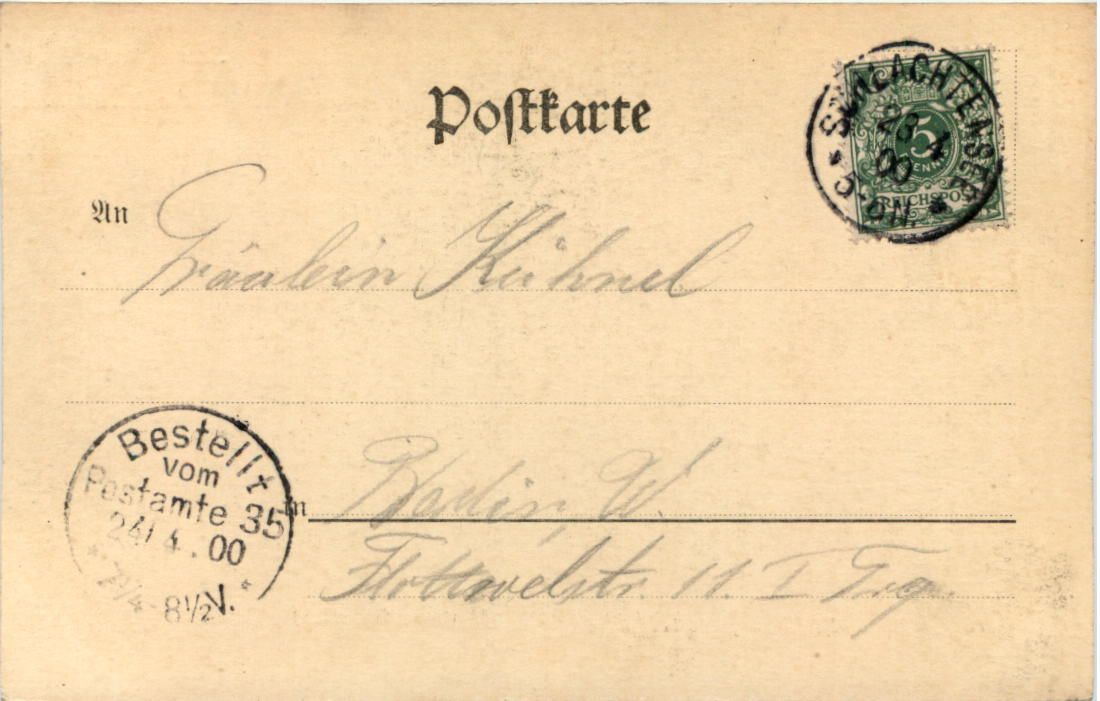 Postkarte
SCHLACHTENSEE
23 4
00
5-6N.
5
PFENNIG
REICHSPOST
An
Fräulein Kühnel
Bestellt
vom
Postamte 35
24/4.00
7¼-8½V.
in
Berlin, W.
Flottwelstr. 11. I Trp.